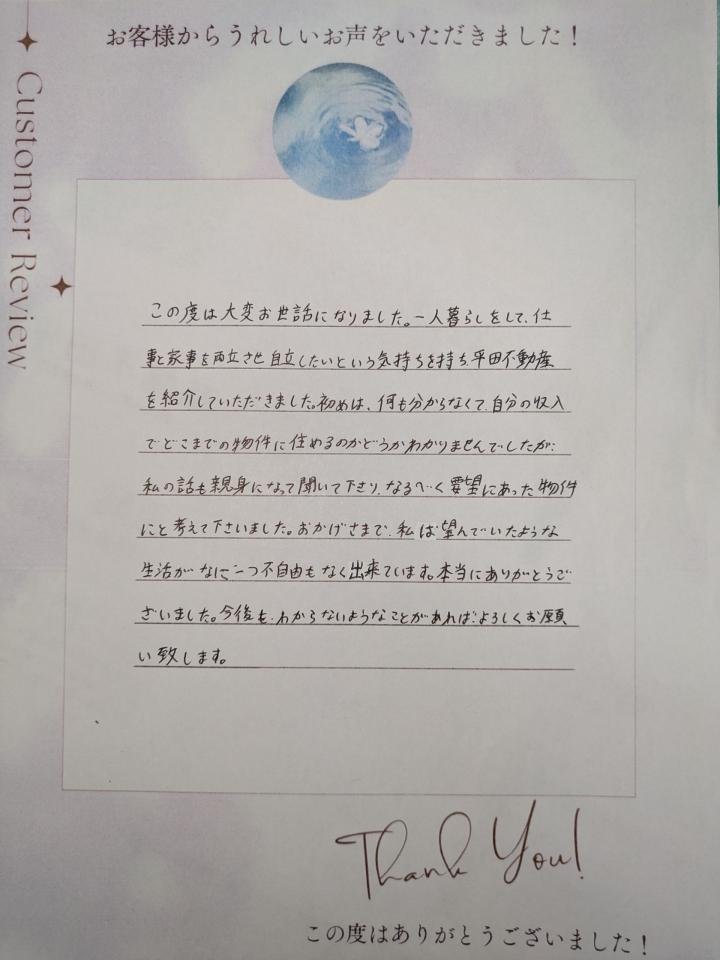 お客様からうれしいお声をいただきました！
Customer Review
この度は大変お世話になりました。一人暮らしをして、仕
事と家事を両立させ自立したいという気持ちを持ち平田不動産
を紹介していただきました。初めは、何も分からなくて、自分の収入
でどこまでの物件に住めるのかどうかわかりませんでしたが、
私の話も親身になって聞いて下さり、なるべく要望にあった物件
にと考えて下さいました。おかげさまで、私は望んでいたような
生活がなに一つ不自由もなく出来ています。本当にありがとうご
ざいました。今後も、わからないようなことがあれば、よろしくお願
い致します。
Thank You!
この度はありがとうございました！